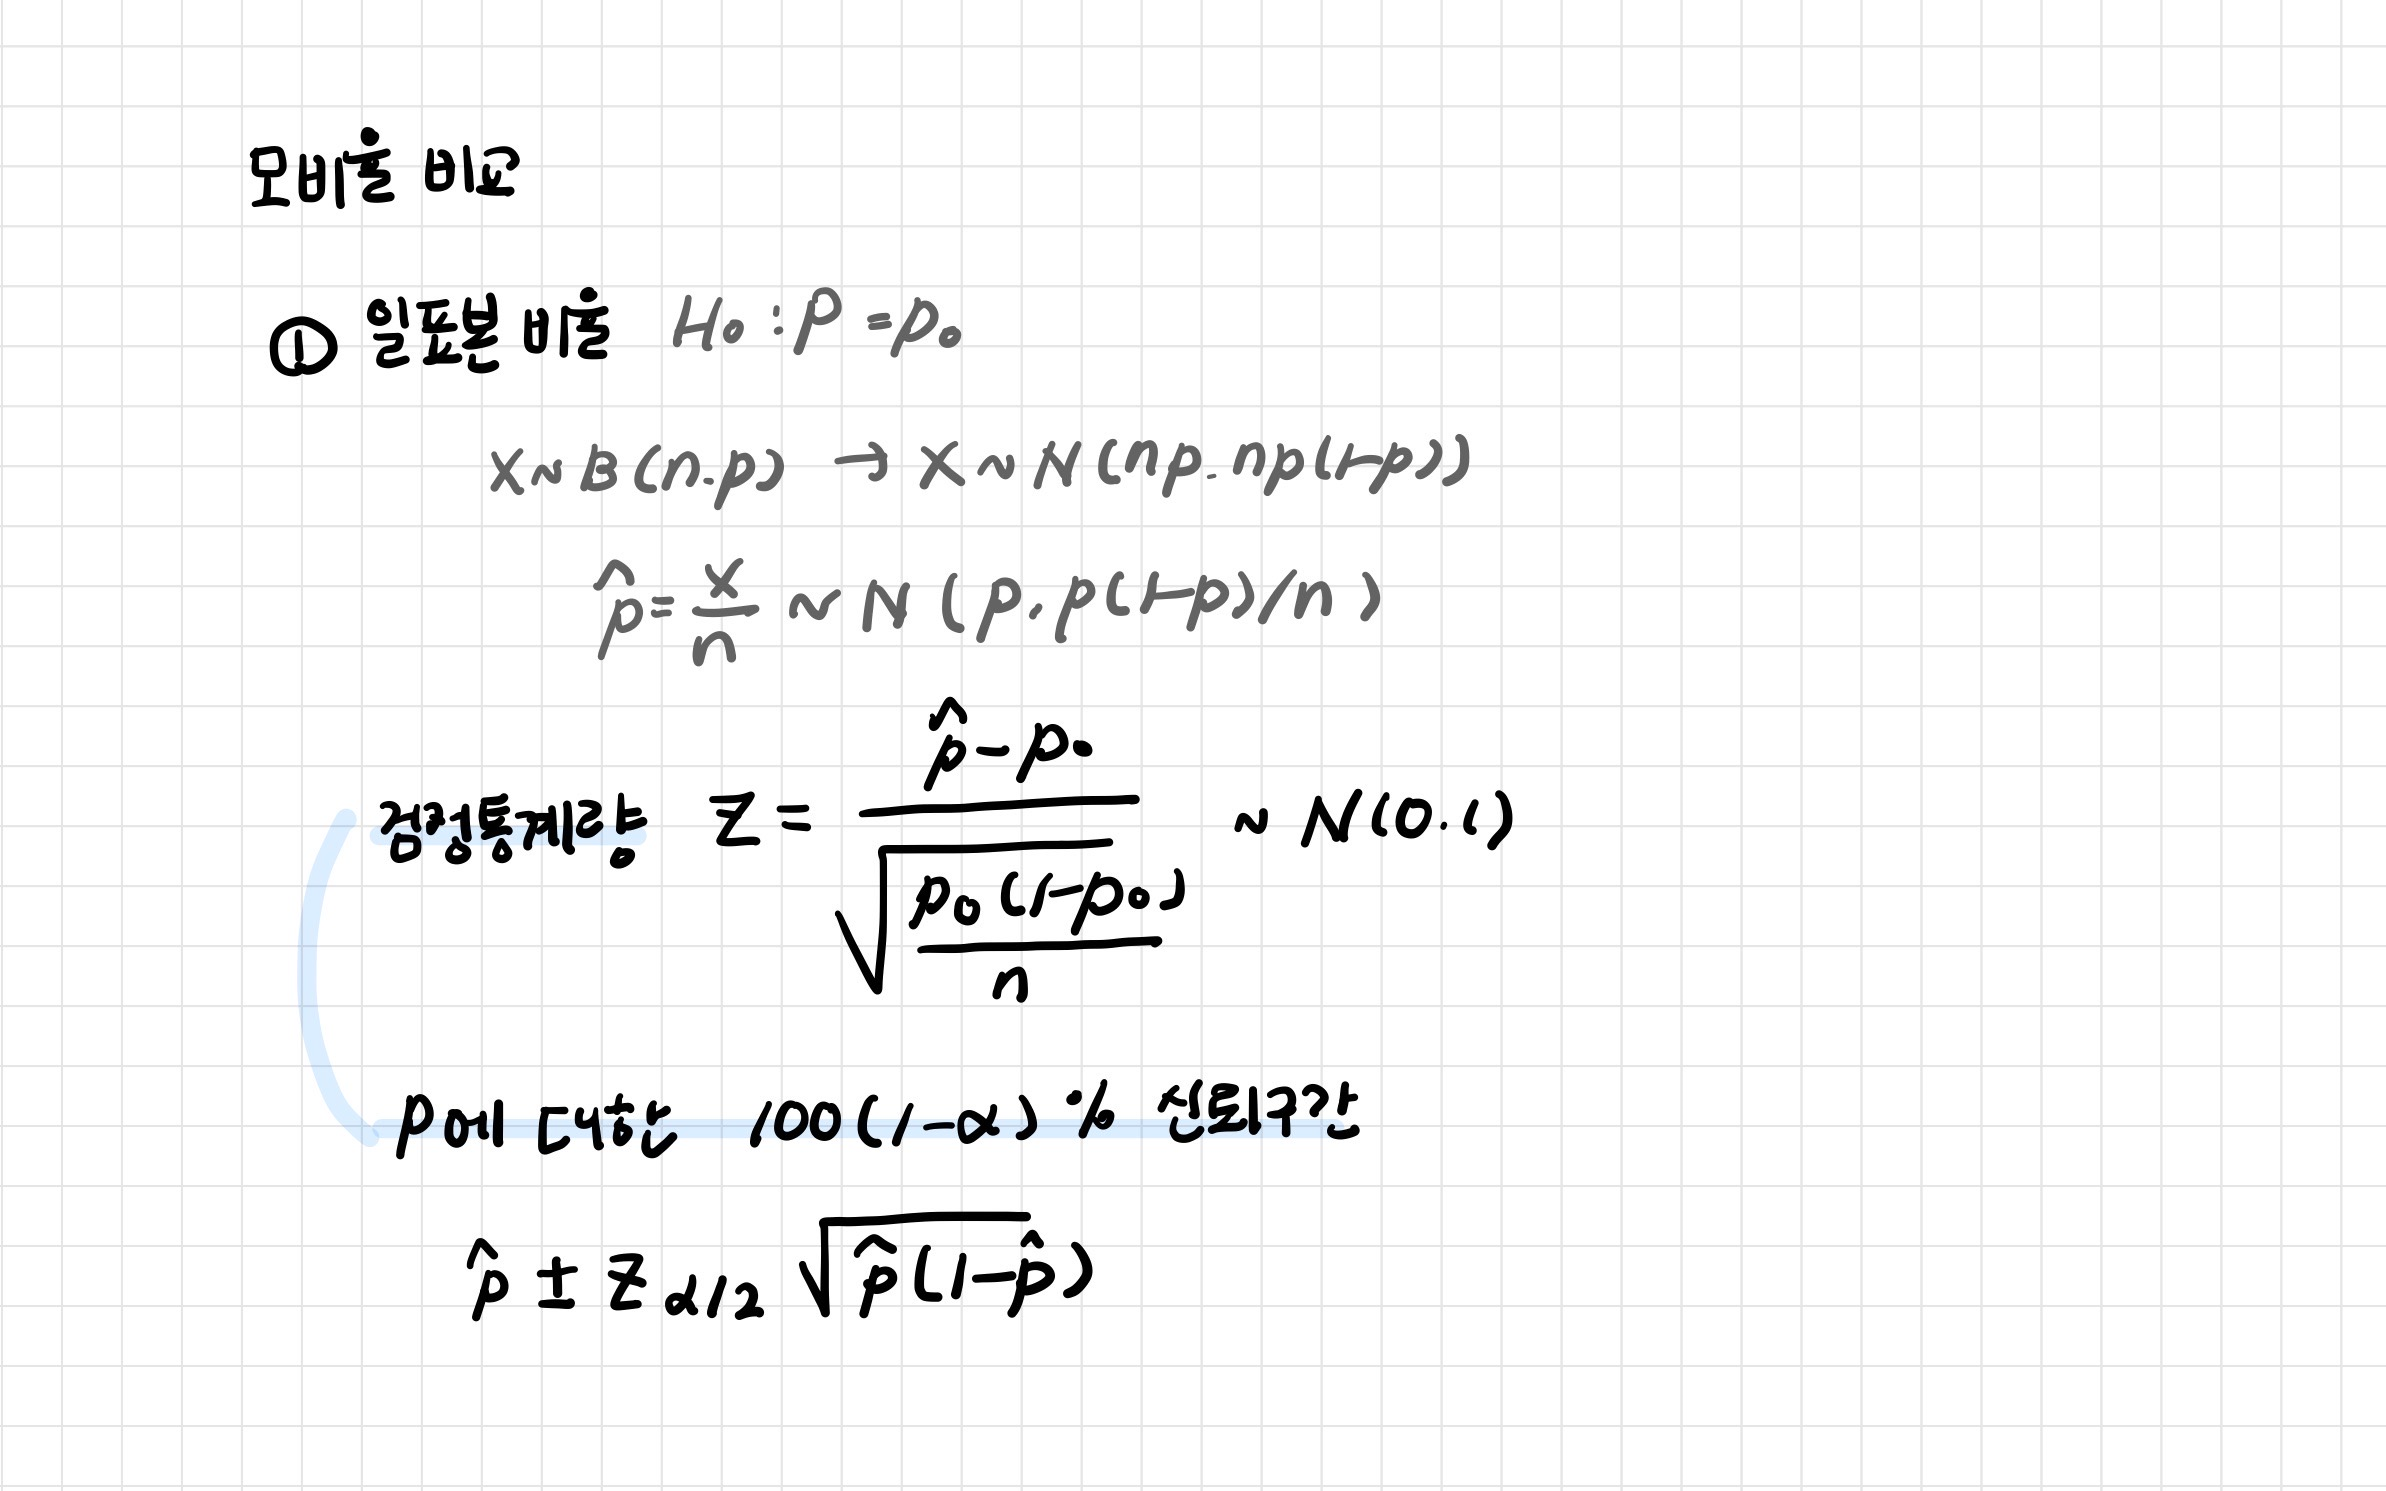 모비율 비교
① 일표본 비율 H₀ : p = p₀
X ~ B(n.p) → X ~ N(np. np(1-p))
p̂ = X/n ~ N(p. p(1-p)/n)
검정통계량 Z = (p̂ - p₀) / √(p₀(1-p₀)/n) ~ N(0.1)
p에 대한 100(1-α)% 신뢰구간
p̂ ± Z α/2 √p̂(1-p̂)